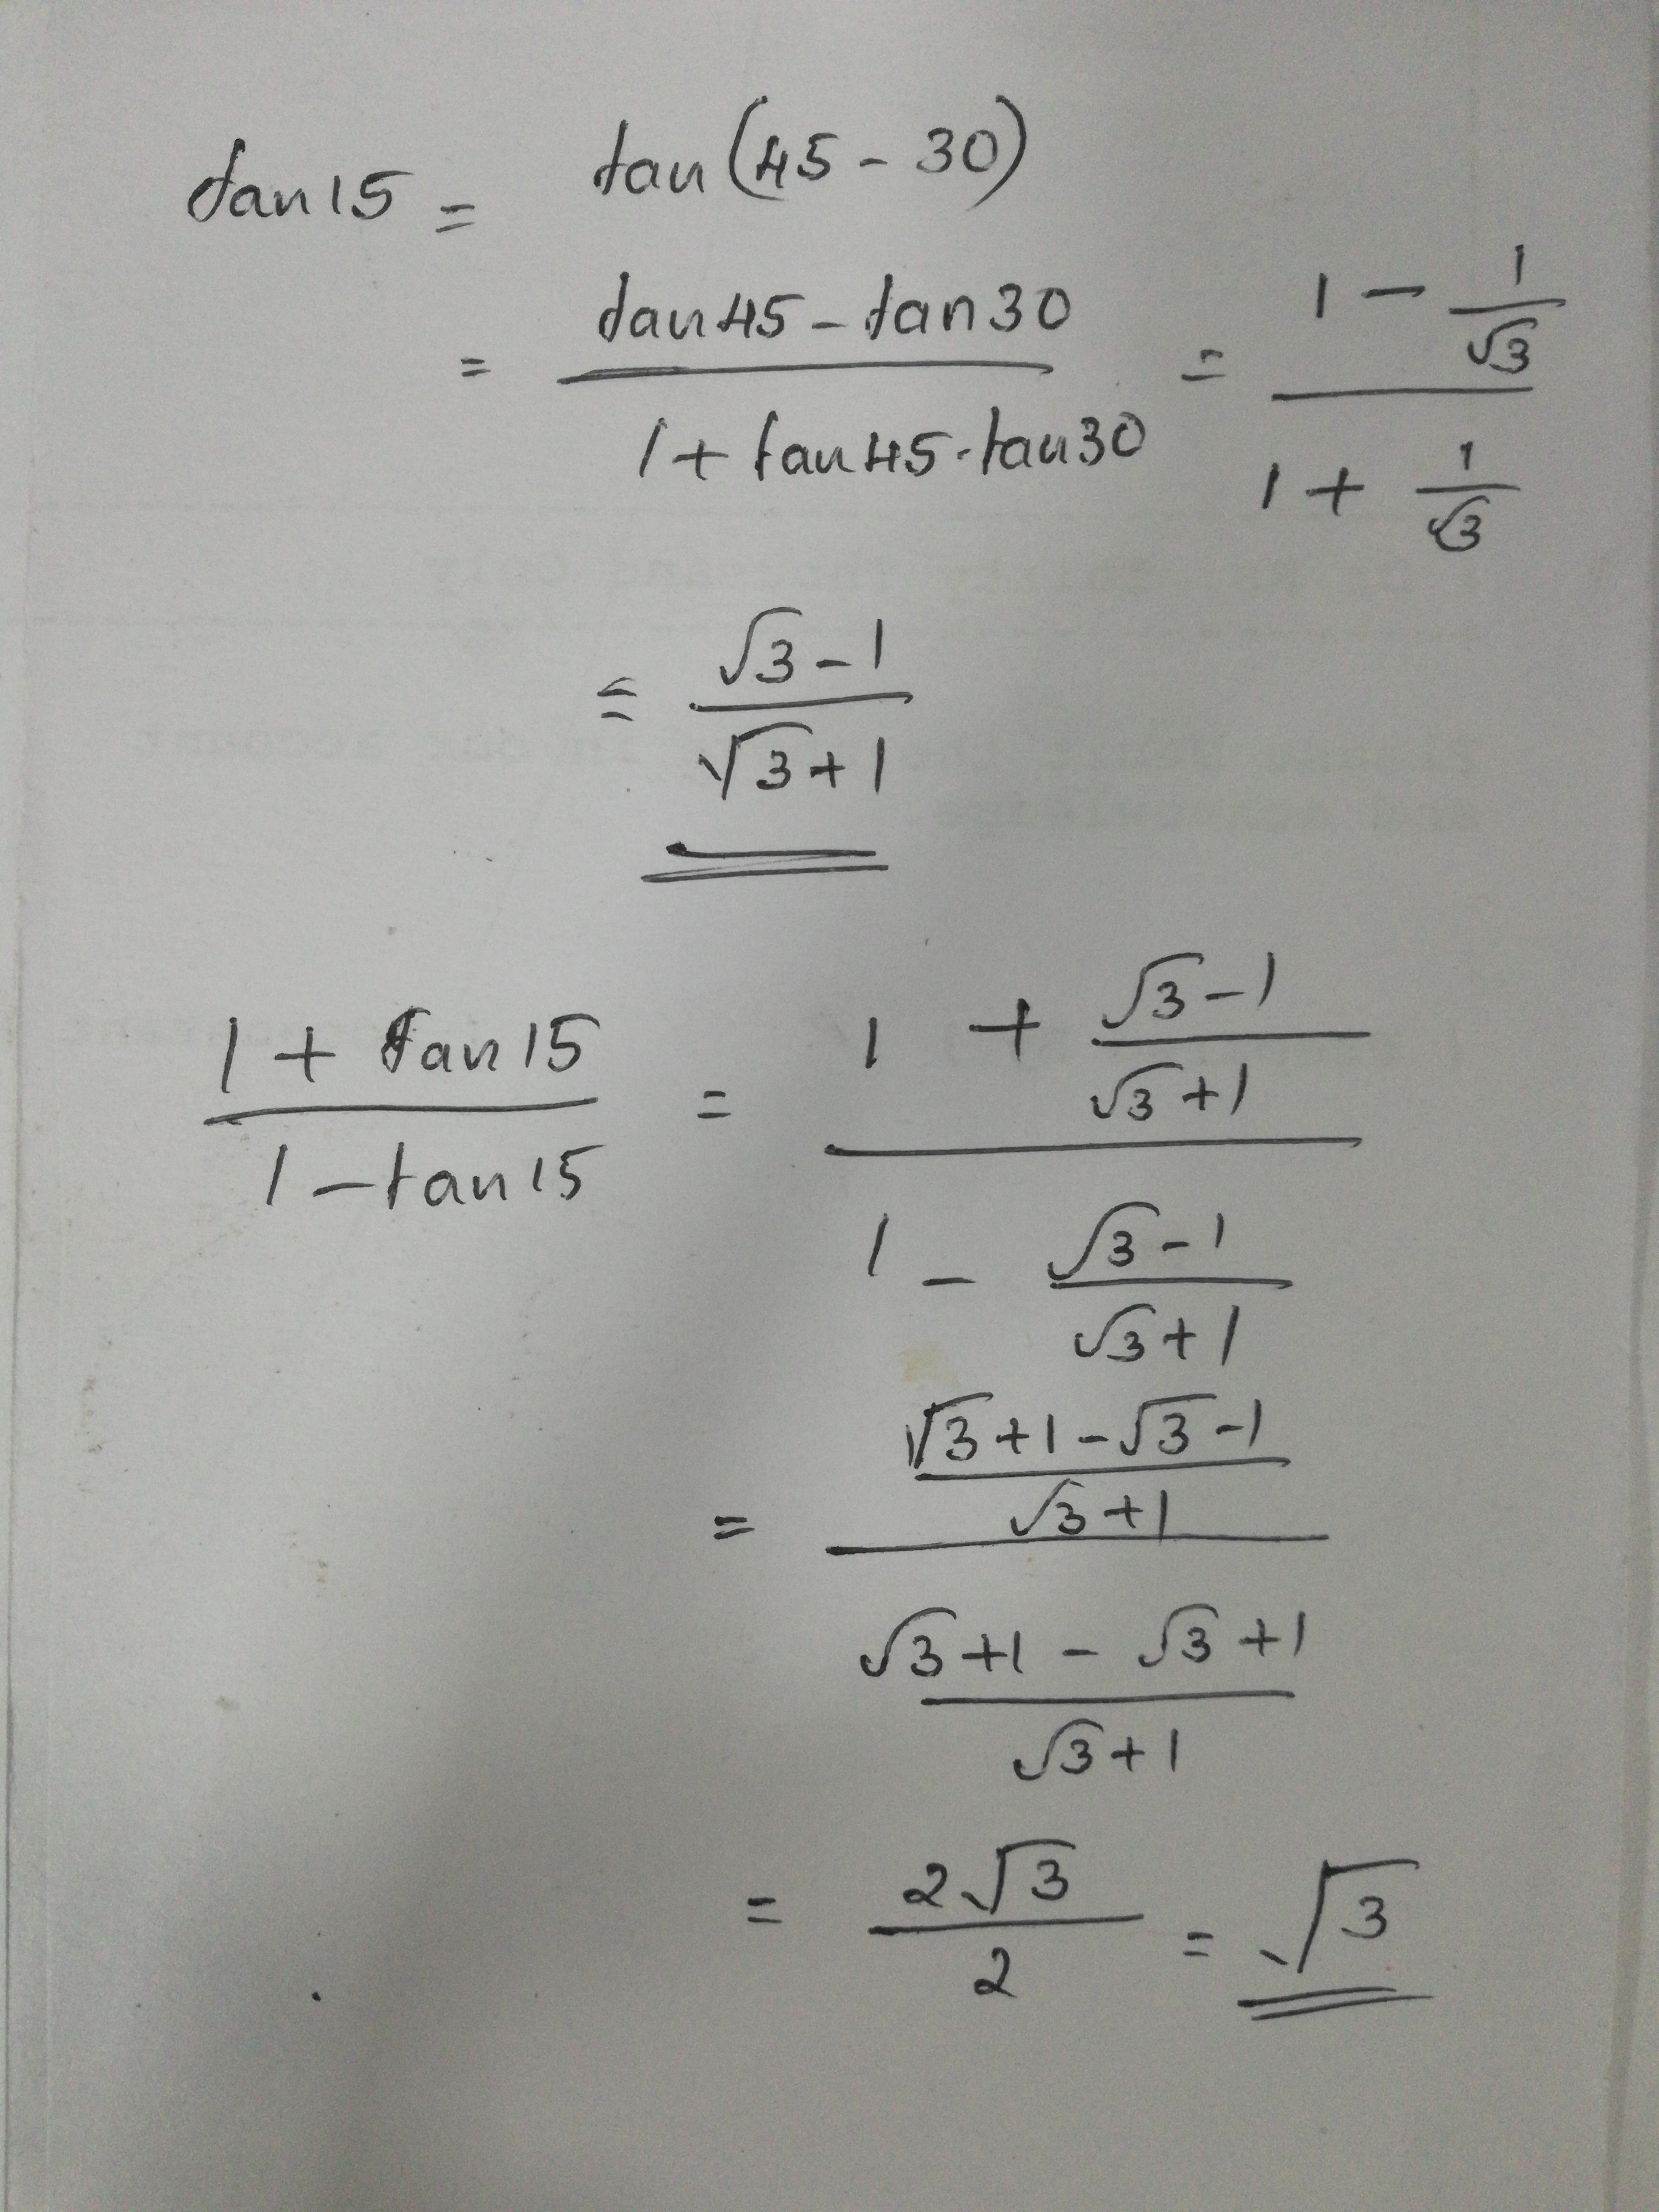 tan 15 = tan (45 - 30)
= (tan 45 - tan 30) / (1 + tan 45 · tan 30) = (1 - 1/√3) / (1 + 1/√3)
= (√3 - 1) / (√3 + 1)
(1 + tan 15) / (1 - tan 15) = (1 + (√3 - 1)/(√3 + 1)) / (1 - (√3 - 1)/(√3 + 1))
= ((√3 + 1 - √3 - 1)/(√3 + 1)) / ((√3 + 1 - √3 + 1)/(√3 + 1))
= 2√3 / 2 = √3